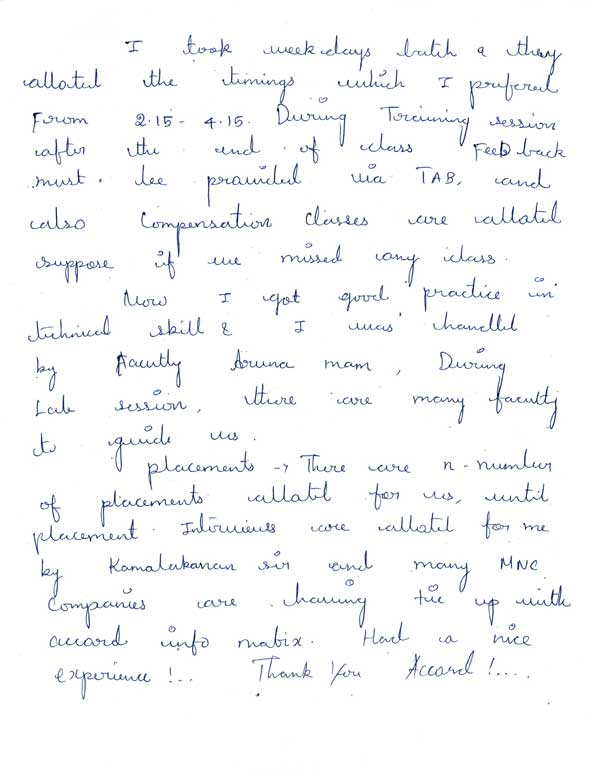 I took weekdays batch & they
allotted the timings which I prefered
From 2.15 - 4.15. During Training session
after the end of class Feedback
must be provided via TAB, and
also Compensation Classes are allotted
suppose if we missed any class.
Now I got good practice in
technical skill & I was handled
by Facutly Aruna mam, During
Lab session, there are many faculty
to guide us.
placements → There are n-number
of placements allotted for us, until
placement Interviews are allotted for me
by Kamalakanan sir and many MNC
Companies are having tie up with
accord info matrix. Had a nice
experience !.. Thank You Accord !....